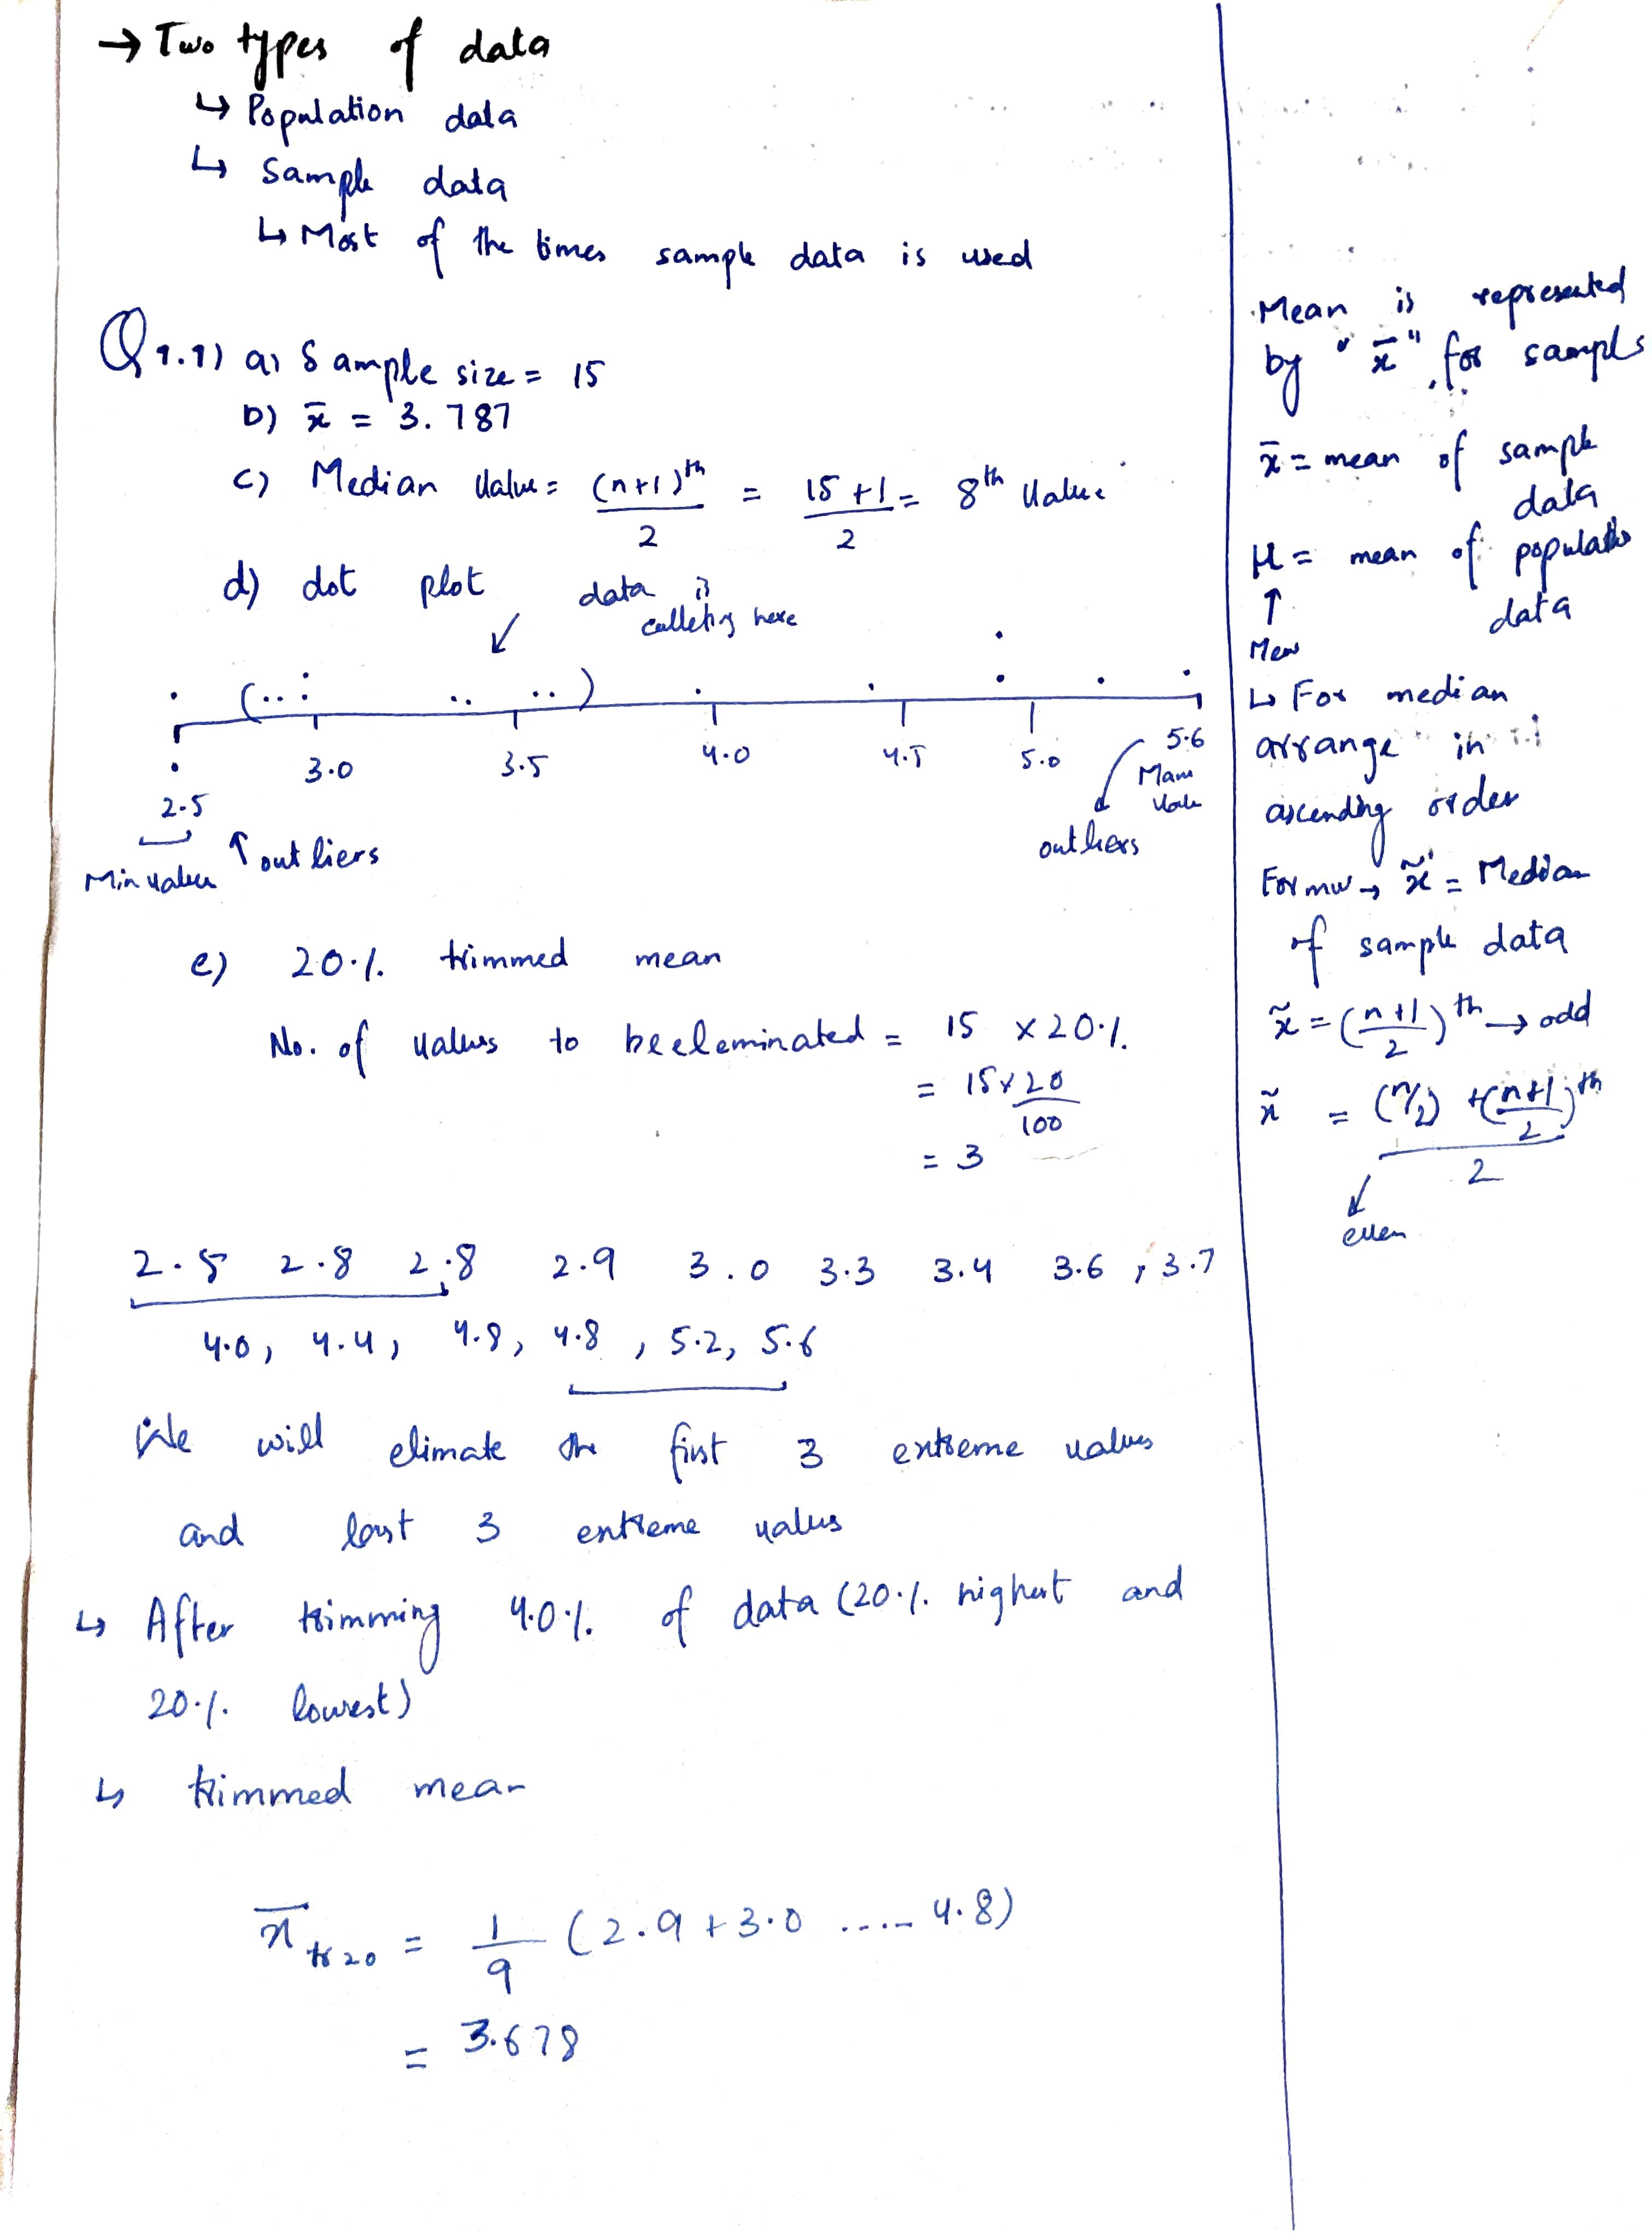 → Two types of data
↳ Population data
↳ Sample data
↳ Most of the times sample data is used
Q 1.1) a) Sample size = 15
b) x̄ = 3.787
c) Median Value = (n+1)th / 2 = 15+1 / 2 = 8th Value
d) dot plot data is
here
3.0 3.5 4.0 4.5 5.0 5.6
2.5
Min value ↑ outliers
outliers
e) 20% trimmed mean
No. of values to be eleminated = 15 × 20%
= 15×20 / 100
= 3
2.5 2.8 2.8 2.9 3.0 3.3 3.4 3.6, 3.7
4.0, 4.4, 4.8, 4.8, 5.2, 5.6
We will elimate the first 3 extreme values
and last 3 extreme values
↳ After trimming 40% of data (20% highest and
20% lowest)
↳ trimmed mean
x̄ tr 20 = 1/9 (2.9 + 3.0 ..... 4.8)
= 3.678
Mean is represented
by "x̄" for sample
x̄ = mean of sample
data
μ = mean of
data
↑
Mew
↳ For median
arrange in
ascending order
→ x̃ = Median
of sample data
x̃ = (n+1 / 2)th → odd
x̃ = (n/2) + (n+1 / 2)th
2
even